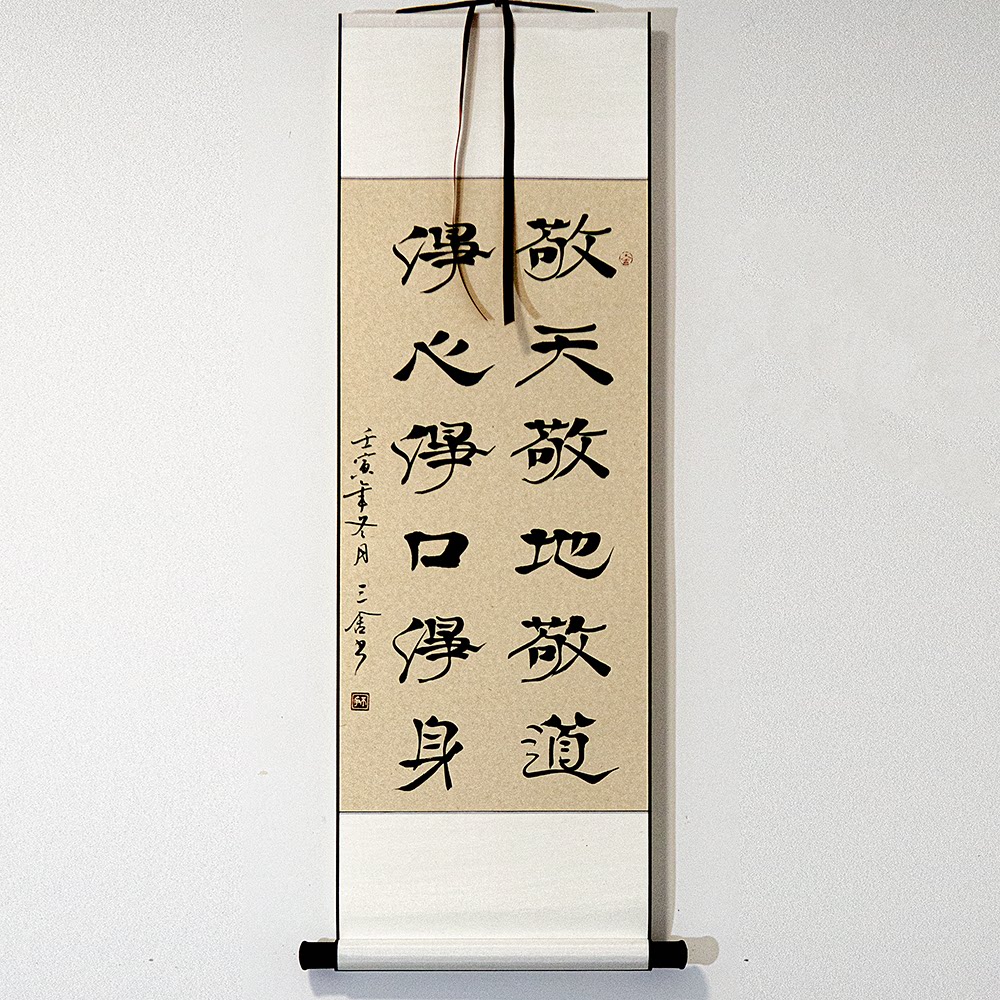 敬天敬地敬道
淨心淨口淨身
壬寅年冬月 三舍书